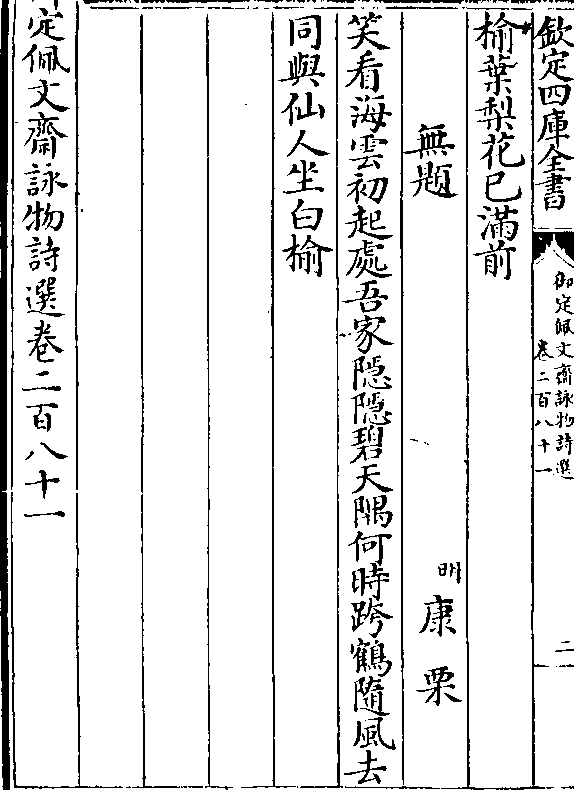 欽定四庫全書
御定佩文齋詠物詩選
卷二百八十一
二
榆葉梨花已滿前
無題
明
康栗
笑看海雲初起處吾家隱隱碧天隅何時跨鶴隨風去
同與仙人坐白榆
定佩文齋詠物詩選卷二百八十一